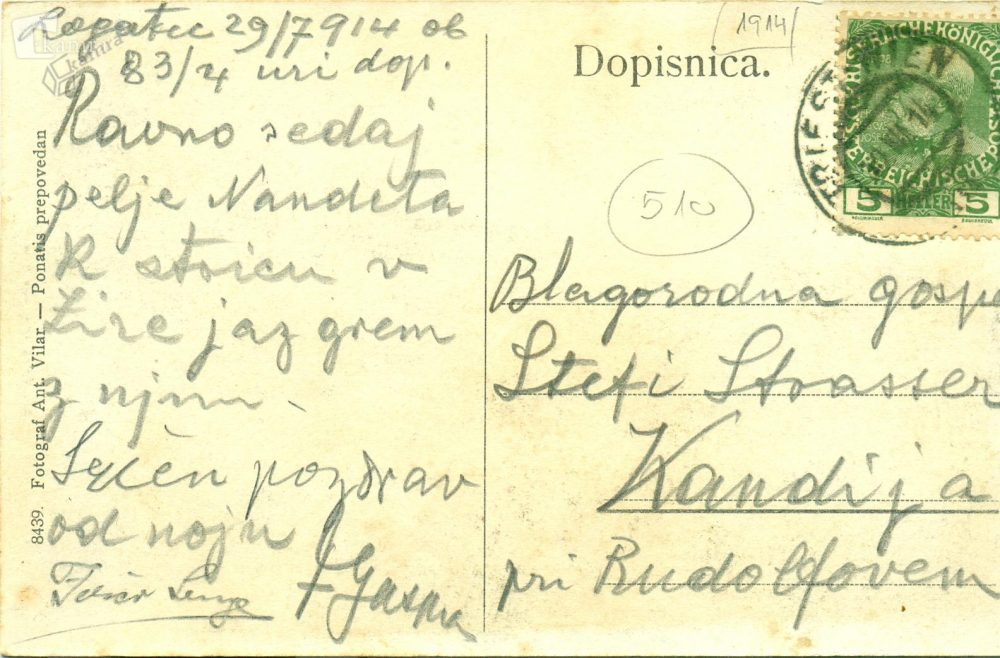 Logatec 29/7 914 ob
8 3/4 uri dop.
Ravno sedaj
pelje Nandeta
k stricu v
Žire jaz grem
z njim.
Srčen pozdrav
od naju
8439. Fotograf Ant. Vilar — Ponatis prepovedan
1914
Dopisnica.
510
TRIEST WIEN
5 HELLER 5
Blagorodna gosp
Stefi Strasser
Kandija
pri Rudolfovem
kamra